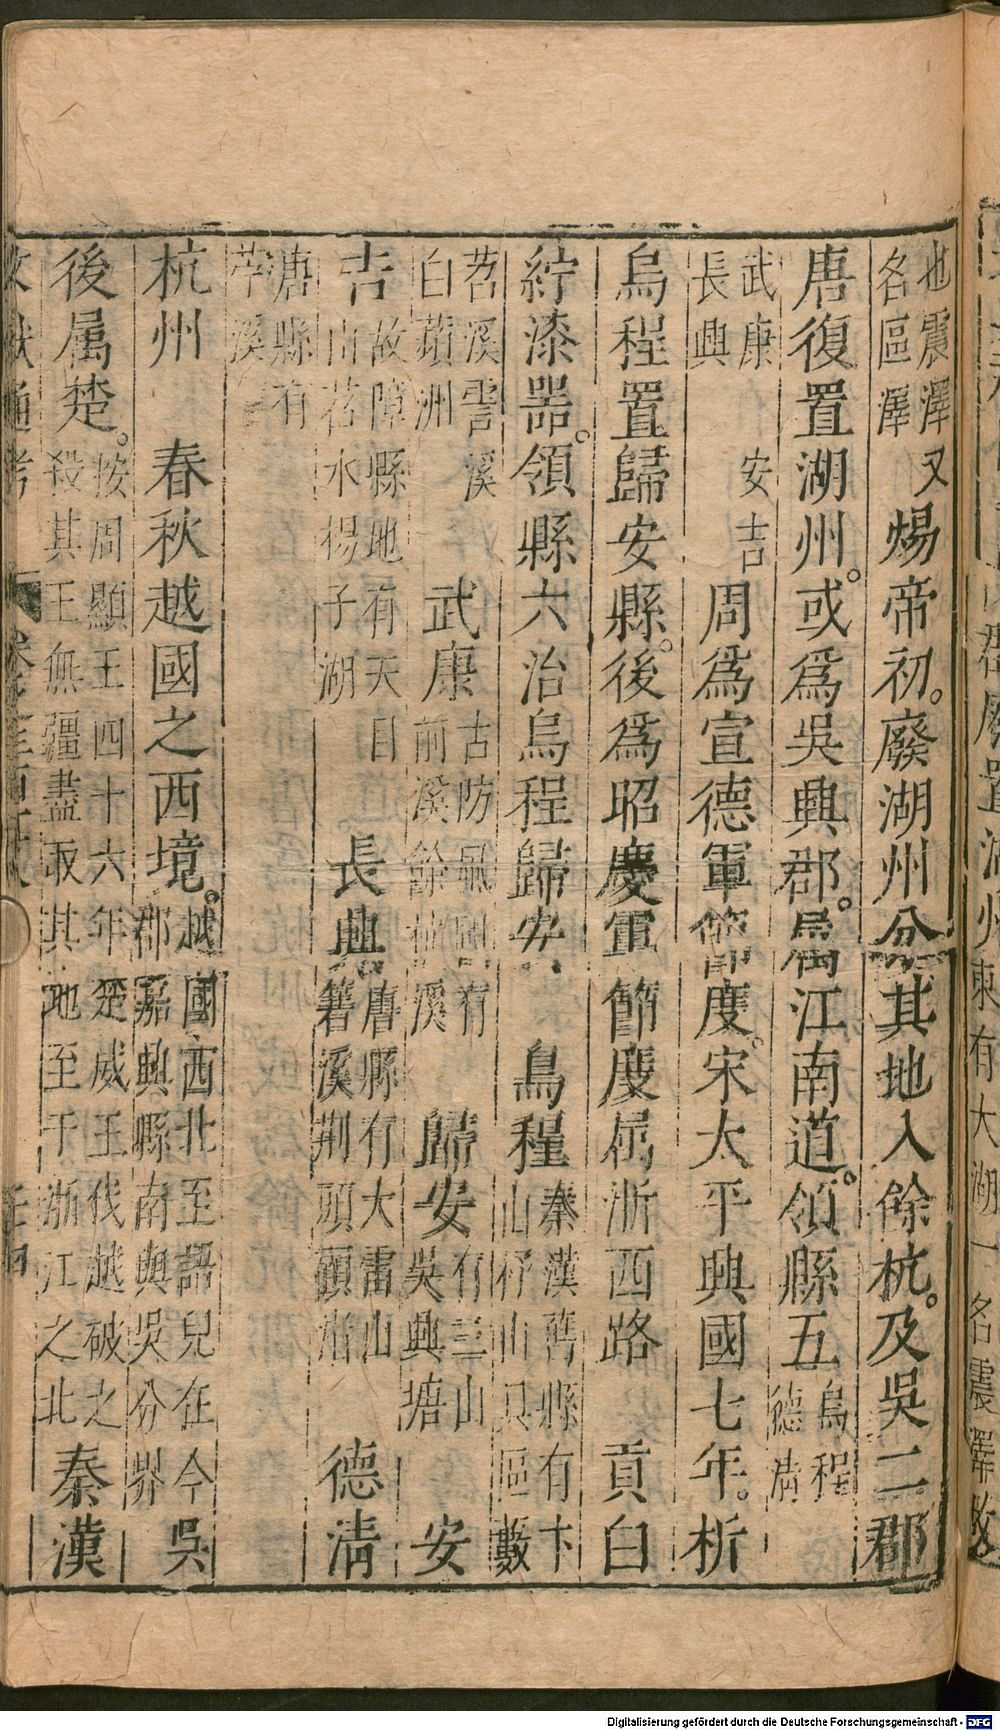 也震澤又名區澤煬帝初。廢湖州分其地入餘杭。及吳二郡
唐復置湖州。或爲吳興郡。屬江南道。領縣五烏程德清
武康長興安吉周爲宣德軍節度。宋太平興國七年。析
烏程置歸安縣。後爲昭慶軍節度屬浙西路貢白
紵漆器。領縣六治烏程歸安烏程秦漢舊縣有卞山杼山具區藪
苕溪霅溪白蘋洲武康古防風國有前溪餘杭溪歸安有三山吳興塘安
吉故障縣地有天目山苕水揚子湖長興唐縣有大雷山箬溪荆頭顧渚德清
唐縣有苧溪
杭州春秋越國之西境。越國西北至語兒在今郡嘉興縣南與吳分界吳
後属楚。按周顯王四十六年楚威王伐越破之殺其王無彊盡取其地至于浙江之北秦漢
文獻通考
Digitalisierung gefördert durch die Deutsche Forschungsgemeinschaft - DFG